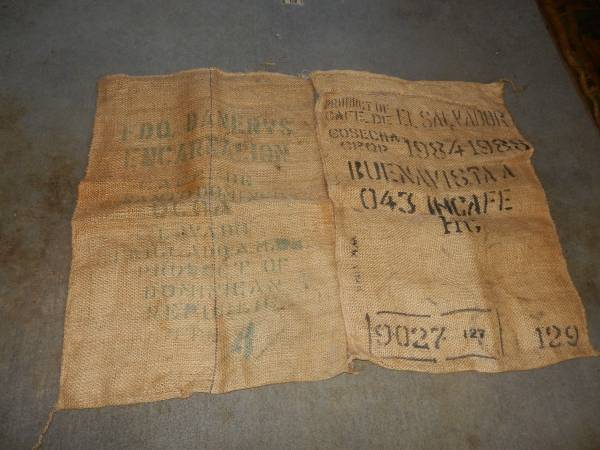 FDO. DANERYS
ENCARNACION
CAFE DE
OCOA
LAVADO
PRODUCT OF
DOMINICAN
REPUBLIC
4
PRODUCT OF
CAFE DE EL SALVADOR
COSECHA
CROP 1984 1985
BUENAVISTA A
043 INCAFE
HG
9027 127 129